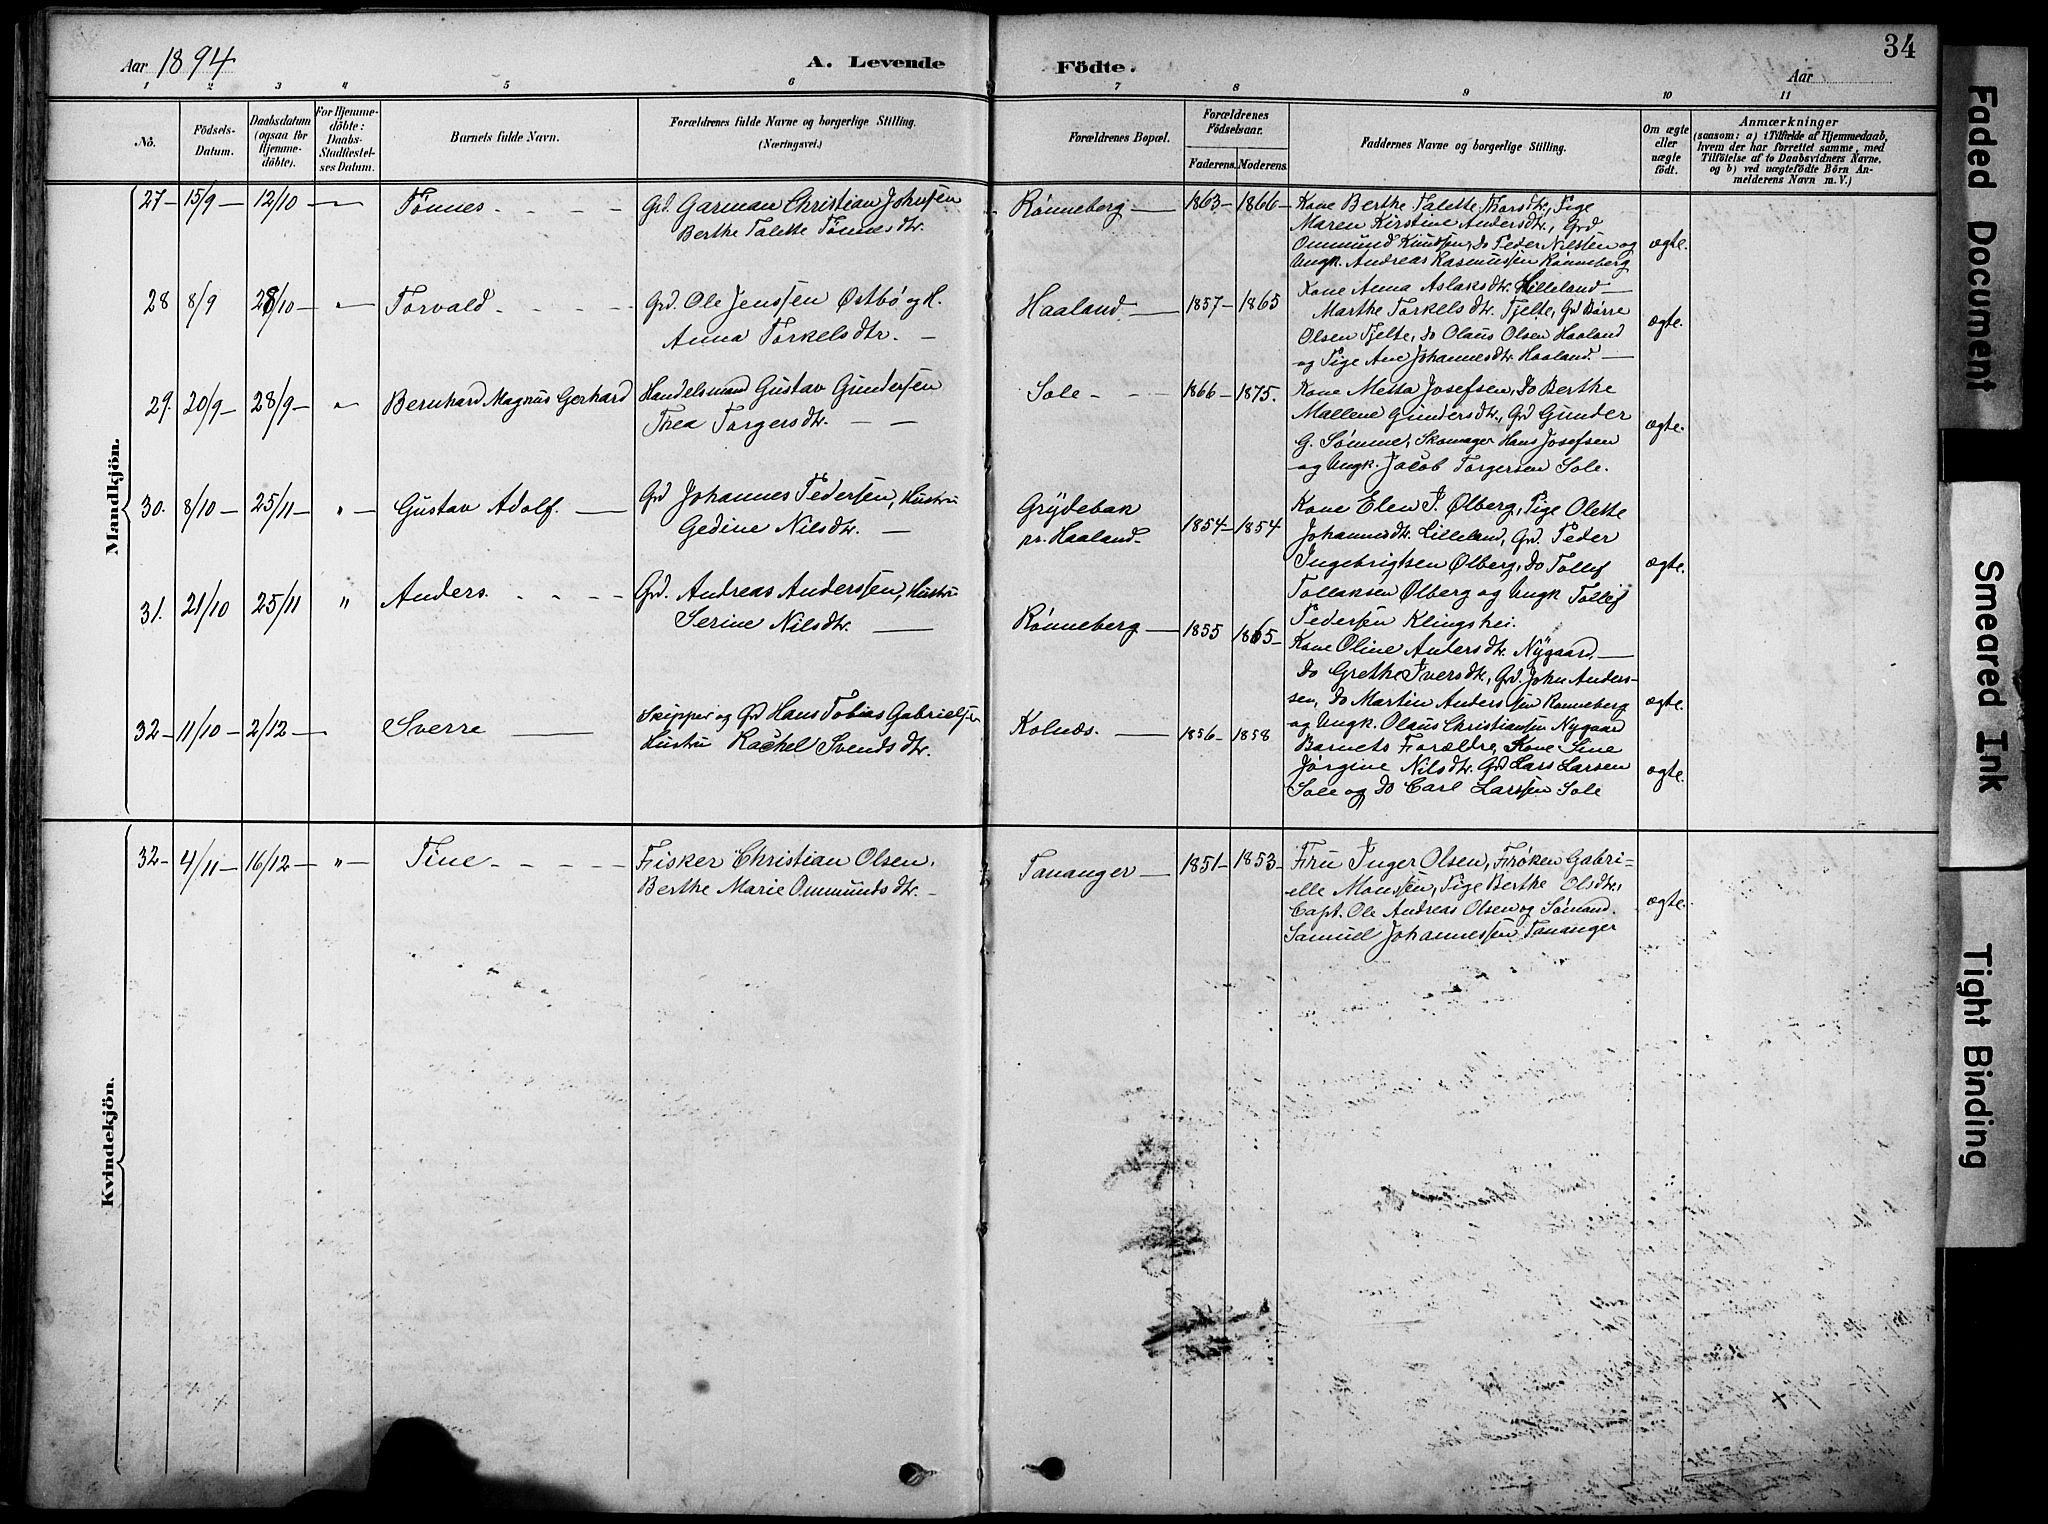 Aar 1894 A. Levende Födte. Aar 34
1 2 3 4 5 6 7 8 9 10 11
No.
Födsels-
Datum.
Daabsdatum
(ogsaa for
Hjemme-
döbte).
For Hjemme-
döbte:
Daabs-
Stadfæstel-
ses Datum.
Barnets fulde Navn.
Forældrenes fulde Navne og borgerlige Stilling.
(Næringsvei.)
Forældrenes Bopæl.
Forældrenes
Födselsaar.
Faderens. Moderens.
Faddernes Navne og borgerlige Stilling.
Om ægte
eller
uægte
födt.
Anmærkninger
(saasom: a) i Tilfælde af Hjemmedaab,
hvem der har forrettet samme, med
Tilföielse af to Daabsvidners Navne,
og b) ved uægtefödte Börn An-
melderens Navn m. V.)
Mandkjön.
27 - 15/9 - 12/10 - Tønnes - - - - Grd. Garman Christian Johnsen
Berthe Talette Tønnesdtr.
Rønneberg - 1863 - 1866 - Kone Berthe Talette Thorsdtr, Pige
Maren Kirstine Andersdtr., Grd
Ommund Knudsen, Do Peder Nilssen og
Ungk. Andreas Rasmussen Rønneberg
ægte.
28 8/9 28/10 - " - Torvald - - - - Grd. Ole Jenssen Østbø og H.
Anna Torkelsdtr. -
Haaland - 1857 - 1865 Kone Anna Aslaksdtr. Lilleland -
Marthe Torkelsdtr. Tjelte, Grd Børre
Olsen Tjelte, Do Olaus Olsen Haaland
og Pige Ane Johannesdtr Haaland. -
ægte.
29. 20/9 - 28/9 - " Bernhard Magnus Gerhard Handelsmand Gustav Gundersen
Thea Torgersdtr. - -
Sole - - - 1866 - 1875. Kone Metta Josefsen, Do Berthe
Mallene Gundersdtr., Grd Gunder
G. Sømme, Skomager Hans Josefsen
og Ungk. Jacob Torgersen Sole.
ægte.
30. 8/10 - 25/11 - " - Gustav Adolf. - Grd Johannes Pedersen, Hustru
Gedine Nilsdtr. -
Grydebak
pr. Haaland - 1854 - 1854 Kone Elen I. Ølberg, Pige Olette
Johannesdtr. Lilleland, Grd. Peder
Ingebrigtsen Ølberg, Do Tollef
Tollaksen Ølberg og Ungk Tollef
Pedersen Klingshei.
ægte.
31. 21/10 25/11 " - Anders. - - - - Grd. Andreas Anderssen, Hustru
Serine Nilsdtr. -
Rønneberg - 1855 1865 - Kone Oline Andersdtr. Nygaard. -
Do Grethe Iversdtr, Grd. John Anders-
sen, Do Martin Anderssen Rønneberg
og Ungk. Olaus Christiansen Nygaard
ægte.
32 - 11/10 - 2/12 - Sverre - Skipper og Grd Hans Tobias Gabrielsen
Hustru Rachel Svendsdtr.
Kolnæs. - 1856 - 1858 Barnets Forældre, Kone Sine
Jørgine Nilsdtr. Grd Lars Larsen
Sole og Do Carl Larssen Sole
ægte.
Kvindekjön.
32 - 4/11 - 16/12 - " - Tine - - - - Fisker Christian Olsen,
Berthe Marie Ommundsdtr. -
Tananger - 1851 - 1853 - Fru Inger Olsen, Frøken Gabri-
elle Monssen, Pige Berthe Olsdtr.,
Capt. Ole Andreas Olsen og Sømand.
Samuel Johannessen Tananger
ægte.
Faded Document
Smeared Ink
Tight Binding